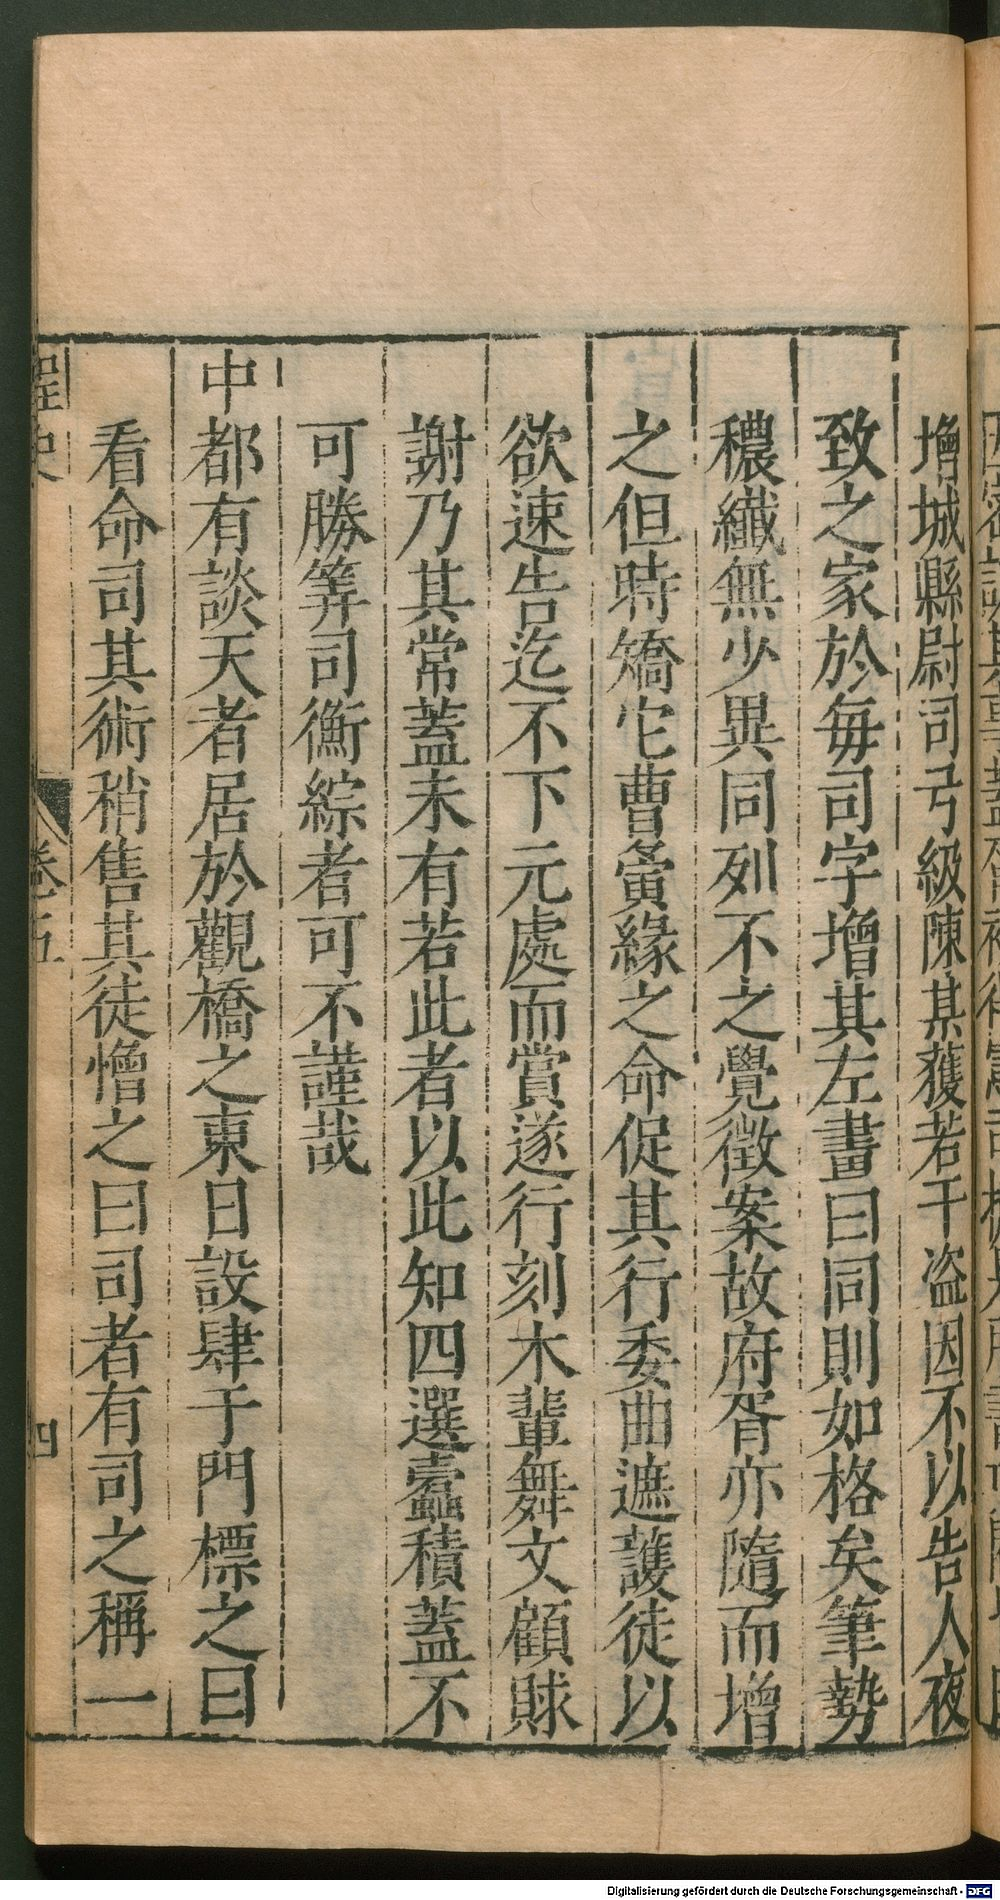 增城縣尉司弓級陳某獲若干盗因不以告人夜
致之家於每司字增其左畫曰同則如格矣筆勢
穠纖無少異同列不之覺徴案故府胥亦隨而增
之但時矯它曹夤緣之命促其行委曲遮護徒以
欲速告迄不下元處而賞遂行刻木輩舞文顧賕
謝乃其常蓋未有若此者以此知四選蠹積蓋不
可勝筭司衡綜者可不謹哉
中都有談天者居於觀橋之東日設肆于門標之曰
看命司其術稍售其徒憎之曰司者有司之稱一
桯史
卷五
四
Digitalisierung gefördert durch die Deutsche Forschungsgemeinschaft - DFG